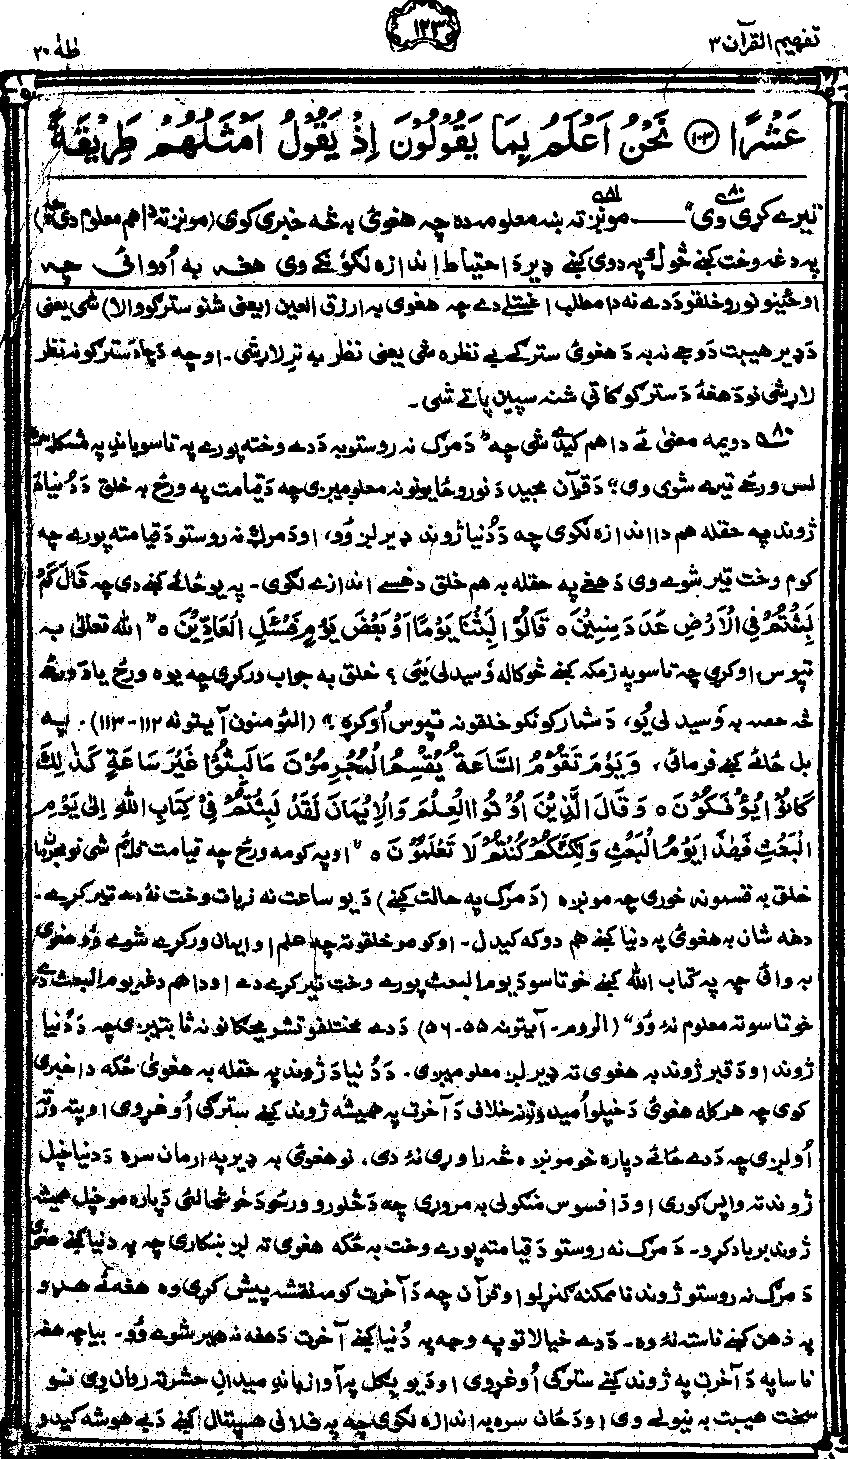 تفهیم القرآن ۳
۱۲۳
طٰهٰ ۲۰
عَشْرًا ۝۱۰۳ نَحْنُ اَعْلَمُ بِمَا يَقُوْلُوْنَ اِذْ يَقُوْلُ اَمْثَلُهُمْ طَرِيْقَةً
تیرے کړی وی" ۸۰ — مونږ ته ښه معلومه ده چه هغوئ به څه خبرې کوی (مونږ ته دا هم معلوم دی چه)
په دغه وخت کښے څوک په دوی کښے ډیر د احتیاط اندازه لګوونکے وی هغه به اُوائی چه
اوځینو نورو خلقو د دے نه دا مطلب اخستلے دے چه هغوی به ارزق العین (یعنی شنو سترګو والا) شی یعنی
د ډیر هیبت د وجے نه به د هغوئ سترګے بے نظره شی یعنی نظر به تر لاړ شی۔ اوچه د چا د سترګو نه نظر
لاړ شی نو د هغهٔ د سترګو کاتی شنه سپین پاتے شی۔
۸۰ دویمه معنیٰ ئے دا هم کیدے شی چه "د مرګ نه روستو به د دے وخته پورے په تاسو باندِ په مشکله
لس ورځے تیرے شوی وی" د قرآن مجید د نورو ځایونو نه معلومیږی چه د قیامت په ورځ به خلق د دُنیا د
ژوند په حقله هم دا اندازه لګوی چه د دُنیا ژوند ډیر لږ وو، او د مرګ نه روستو د قیامته پورے چه
کوم وخت تیر شوے وی د هغے په حقله به هم خلق دغسے اندازے لګوی۔ په یو ځائے کښے دی چه قَالَ كَمْ
لَبِثْتُمْ فِي الْاَرْضِ عَدَدَ سِنِيْنَ ۝ قَالُوْا لَبِثْنَا يَوْمًا اَوْ بَعْضَ يَوْمٍ فَسْئَلِ الْعَادِّيْنَ ۝" الله تعالیٰ به
تپوس اوکړی چه تاسو په زمکه کښے څو کاله وَسیدلی یئ؟ خلق به جواب ورکړی چه یوه ورځ یا د ورځے
څه حصه به وَسیدلی یُو، د شمار کوونکو خلقو نه تپوس اُوکړه؟" (المؤمنون آیتونه ۱۱۲-۱۱۳). په
بل ځائے کښے فرمائی، وَيَوْمَ تَقُوْمُ السَّاعَةُ يُقْسِمُ الْمُجْرِمُوْنَ مَا لَبِثُوْا غَيْرَ سَاعَةٍ كَذٰلِكَ
كَانُوْا يُؤْفَكُوْنَ ۝ وَقَالَ الَّذِيْنَ اُوْتُوا الْعِلْمَ وَالْاِيْمَانَ لَقَدْ لَبِثْتُمْ فِيْ كِتَابِ اللهِ اِلىٰ يَوْمِ
الْبَعْثِ فَهٰذَا يَوْمُ الْبَعْثِ وَلٰكِنَّكُمْ كُنْتُمْ لَا تَعْلَمُوْنَ ۝" اوپه کومه ورځ چه قیامت قائم شی نو مجرمان
خلق به قسمونه خوری چه مونږه (د مرګ په حالت کښے) د یو ساعت نه زیات وخت نهٔ دے تیر کړے۔
دغه شان به هغوئ په دنیا کښے هم دوکه کیدل۔ اوکومو خلقو ته چه علم او ایمان ورکړے شوے وُو هغوی
به وائی چه په کتاب الله کښے خو تاسو د یوم البعث پورے وخت تیر کړے دے اودا هم دغه یوم البعث دے
خو تاسو ته معلوم نهٔ وو" (الروم۔ آیتونه ۵۵-۵۶) د دے مختلفو تشریحګانو نه ثابتیږی چه د دُنیا
ژوند اود قبر ژوند به هغوی ته ډیر لږ معلومیږی۔ د دُنیا د ژوند په حقله به هغوئ ځکه داخبرے
کوی چه هرکله هغوئ د خپلو اُمیدونو خلاف د آخرت په همیشه ژوند کښے سترګے اُوغړوی اوپته ورته
اُولږی چه د دے ځائے دپاره خو مونږه څه راوړی نهٔ دی، نو هغوئ به ډیر په ارمان سره د دنیا خپل
ژوند ته واپس ګوری او د افسوس منګولی به مروړی چه د څلورو ورځو د خوشحالئ دپاره مو خپل همیشه
ژوند برباد کړو۔ د مرګ نه روستو د قیامته پورے وخت به ځکه هغوی ته لږ ښکاری چه په دنیا کښے هغوی
د مرګ نه روستو ژوند ناممکنه ګنړلو او قرآن چه د آخرت کومه نقشه پیش کړی وه هغه ئے هډو
په ذهن کښے ناسته نهٔ وه۔ د دے خیالاتو په وجه په دُنیا کښے آخرت د هغه نه هیر شوے وُو۔ بیا چه هغه
ناساپه د آخرت په ژوند کښے سترګے اُوغړوی اود یو بګل په آواز باندِ میدانِ حشر ته روان وی نو
سخت هیبت به نیولے وی اود ځان سره به اندازه لګوی چه په فلانی هسپتال کښے د بے هوشه کیدو